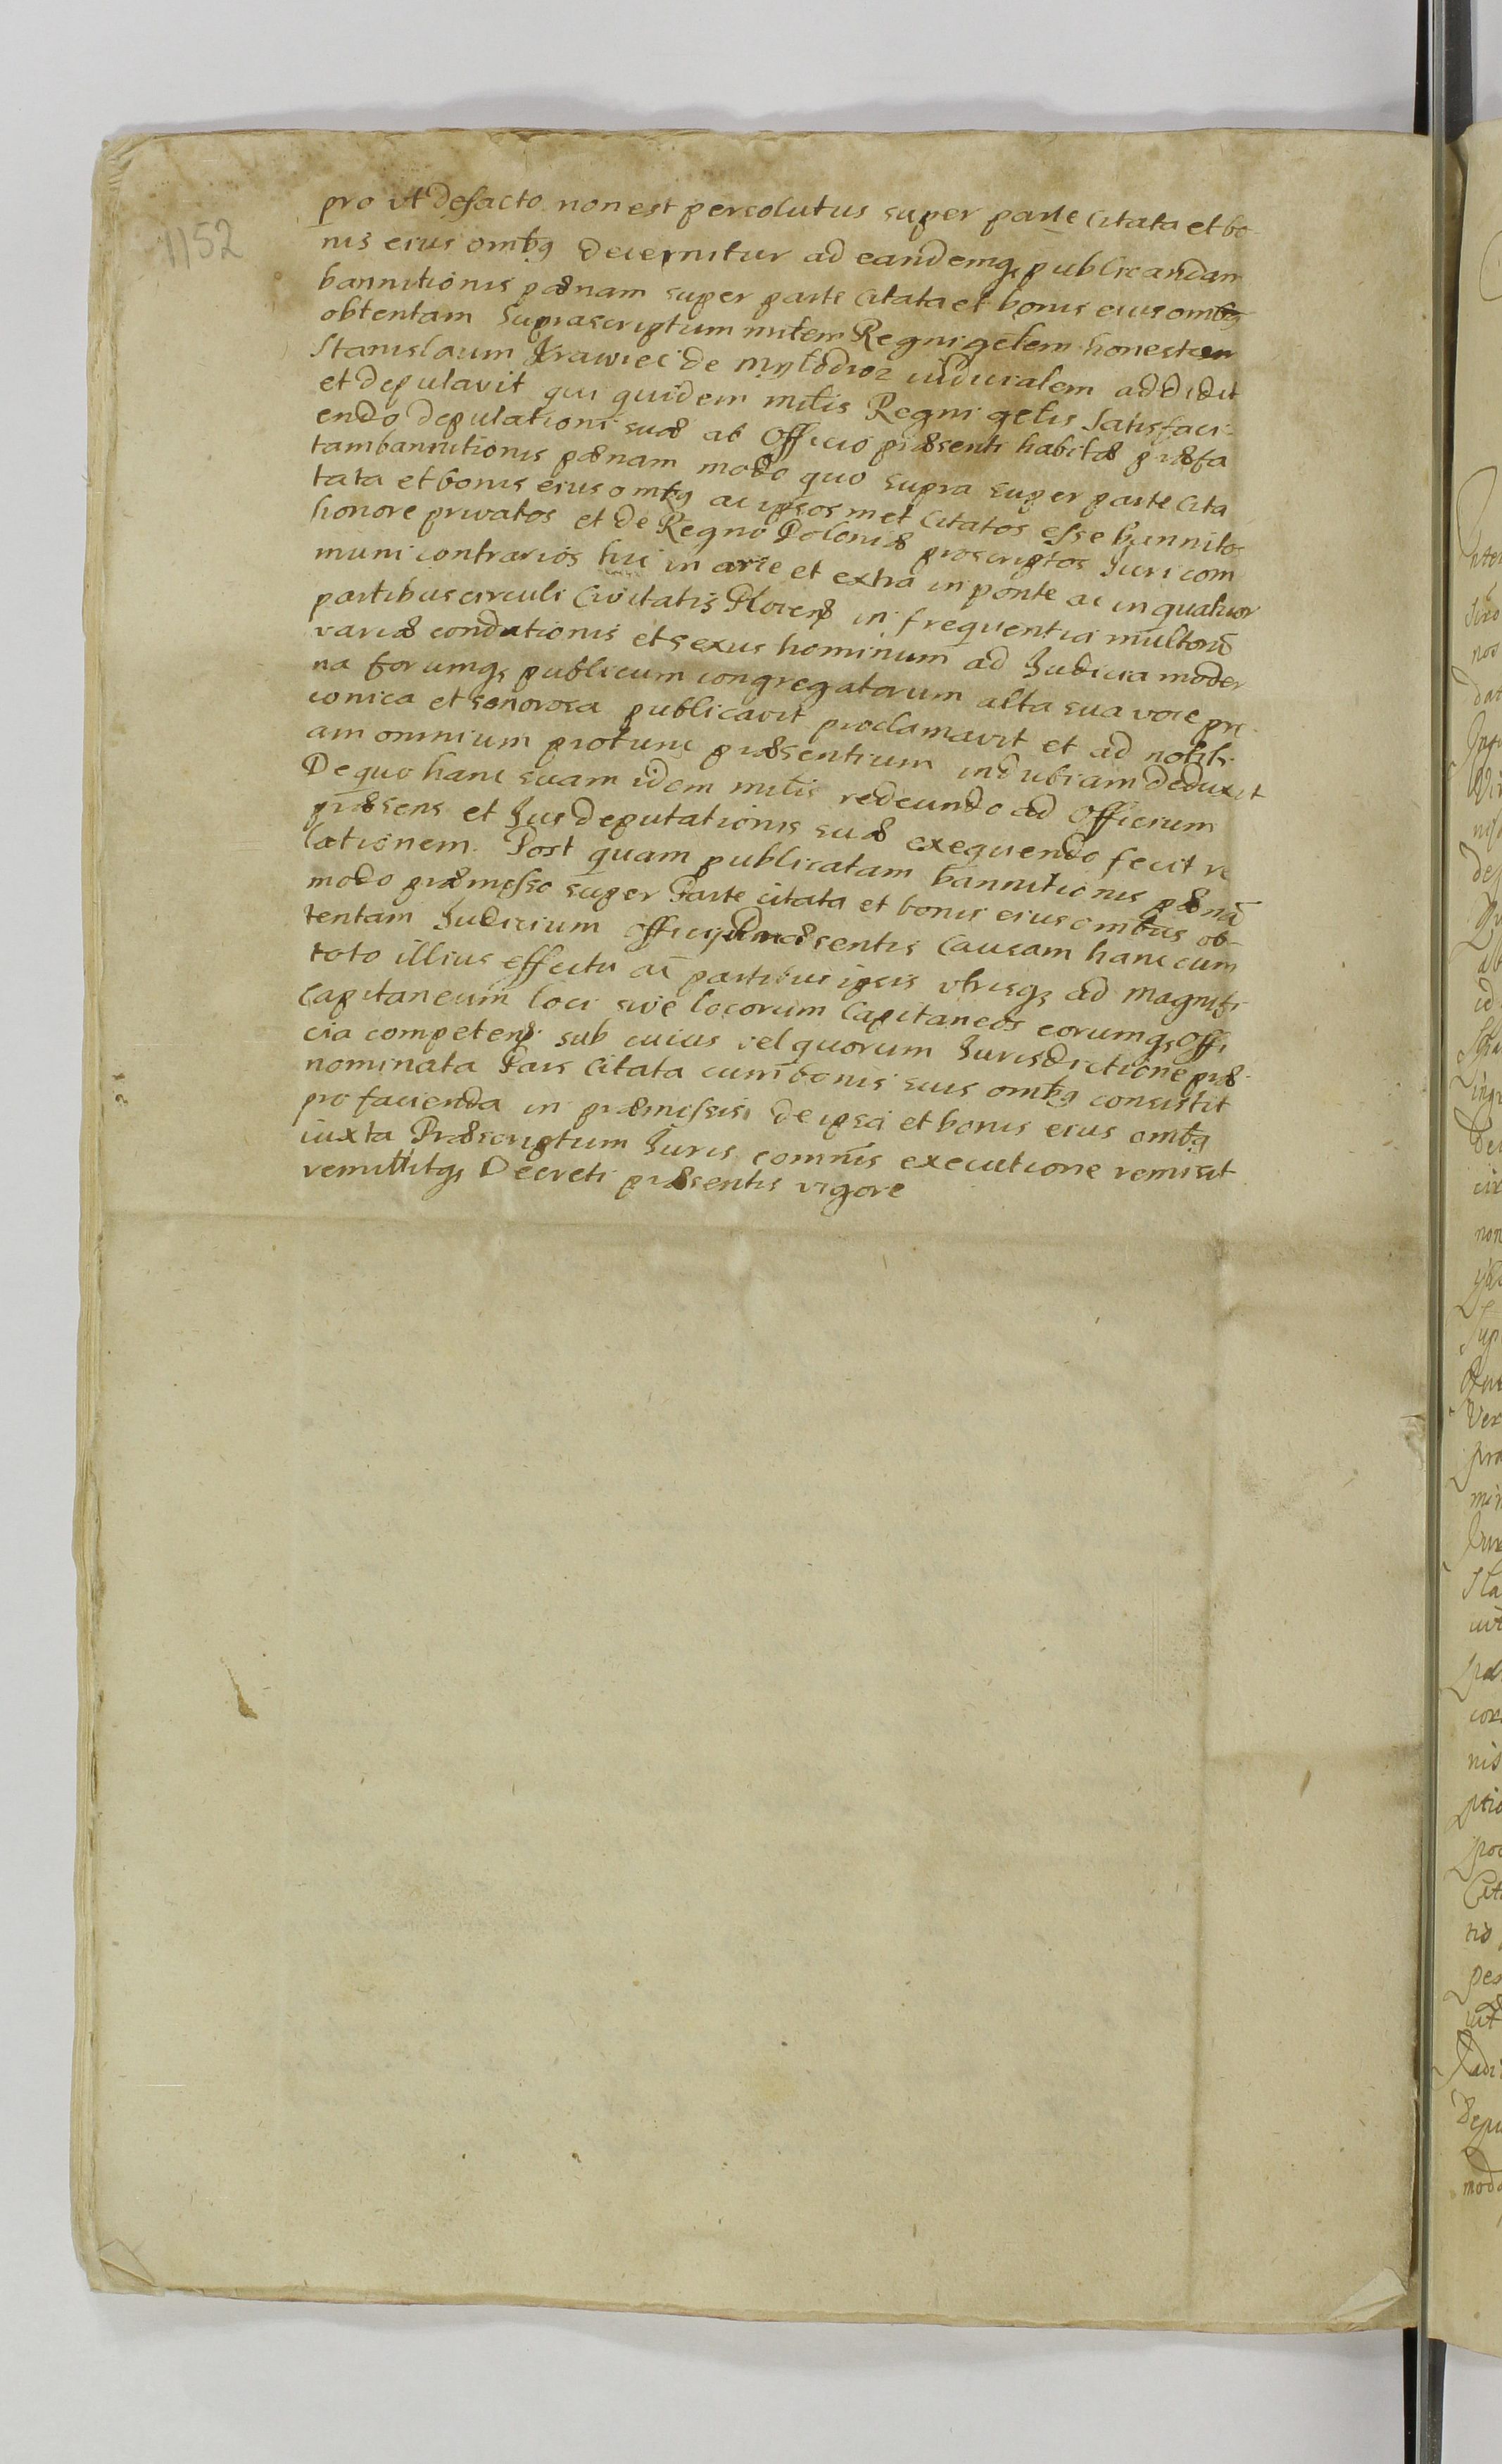 1152
pro vt defacto non est persolutus super parte citata et bo-
nis eius omībq decernitur ad eandemq publicandam
bannitionis pænam super parte citata et bonis eius omībq
obtentam Suprascriptum mīlem Regni gēlem honestum
Stanislaum Krawiec de iudicialem addidit
et deputavit qui quidem mīlis Regni gēlis Satisfaci-
endo deputationi suæ ab Officio præsenti habitæ præfa
tam bannitionis pænam modo quo supra super parte Cita
tata et bonis eius omībq ac ipsos met Citatos esse bannitos
honore privatos et de Regno Poloniæ proscriptos Juri com
muni contrarios hic in arce et extra in ponte ac in quatuor
partibus circuli Civitatis in frequentia multorū
variæ conditionis et sexus hominum ad Judicia moder
na forumq publicum congregatorum alta sua voce pre
conica et sonorosa publicavit proclamavit et ad notiti-
am omnium protunc præsentium indubiam deduxit
De quo hanc suam idem mīlis redeundo ad Officium
præsens et Jus deputationis suæ exequendo fecit re
lationem. Post quam publicatam bannitionis pænā
modo præmisso super Parte citata et bonis eius omībus ob-
tentam Judicium Officij Præsentis Causam hanc cum
toto illius effectu ac partibus ipsis vtrisq ad Magnifi
Capitaneum loci sive locorum Capitaneos eorumq Offi
cia competen sub cuius vel quorum Jurisdictione præ-
nominata Pars Citata cum bonis suis omībq consistit
pro facienda in præmissis de ipsa et bonis eius omībq
iuxta Præscriptum Juris comnis executione remisit
remittitq Decreti præsentis vigore